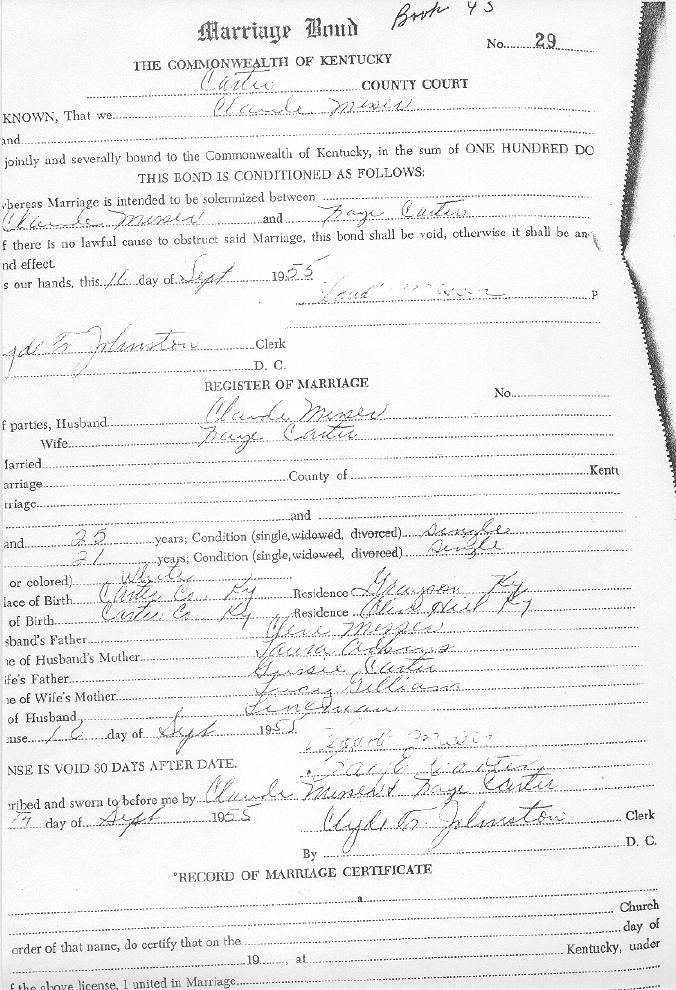 Book 43
Marriage Bond
No. 29
THE COMMONWEALTH OF KENTUCKY
Carter COUNTY COURT
KNOWN, That we Claude Messer
and
jointly and severally bound to the Commonwealth of Kentucky, in the sum of ONE HUNDRED DO
THIS BOND IS CONDITIONED AS FOLLOWS:
whereas Marriage is intended to be solemnized between
Claude Messer and Faye Carter
f there is no lawful cause to obstruct said Marriage, this bond shall be void, otherwise it shall be an
nd effect.
s our hands, this 16 day of Sept 1955
Claude Messer P
yde F. Johnston Clerk
D. C.
REGISTER OF MARRIAGE
No.
f parties, Husband Claude Messer
Wife Faye Carter
Married
arriage County of Kentu
rriage
and
and 25 years; Condition (single, widowed, divorced) single
21 years; Condition (single, widowed, divorced) single
or colored) White
lace of Birth Carter Co. Ky Residence Grayson Ky
of Birth Carter Co. Ky Residence Olive Hill Ky
sband's Father Messer
ne of Husband's Mother Laura Adkins
ife's Father Gussie Carter
e of Wife's Mother Gilliam
of Husband, Lineman
ense 16 day of Sept 1955
Claude Messer
NSE IS VOID 30 DAYS AFTER DATE. Faye Carter
cribed and sworn to before me by Claude Messer & Faye Carter
day of Sept 1955 Clyde F. Johnston Clerk
By D. C.
RECORD OF MARRIAGE CERTIFICATE
a
Church
order of that name, do certify that on the day of
19 , at Kentucky, under
f the above license, I united in Marriage